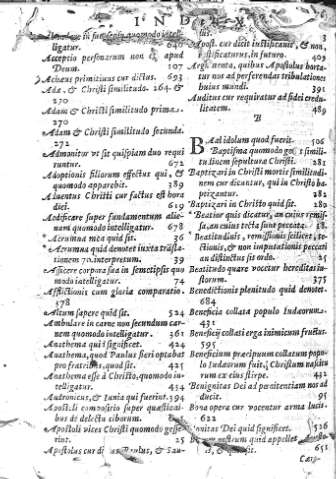 INDEX
in sacerdote quomodo intelligatur. 640
Acceptio personarum non est apud
Deum. 107
Achaeus primitiuus cur dictus. 693
Ada & Christi similitudo. 264. &
270
Adam & Christi similitudo prima.
270
Adam & Christi similitudo secunda.
272
Admonitur vt sit quispiam duo requi
runtur. 672
Adoptionis filiorum effectus qui, &
quomodo apparebit. 389
Aduentus Christi cur factus est hora
diei. 619
Aedificare super fundamentum alie-
num quomodo intelligatur. 678
Aerumna mea quid sit. 36
Aerumna quid denotet iuxta trāsla-
tionem 70. interpretum. 39
Aficere corpora sua in semetipsis quo
modo intelligatur. 74
Afflictionis cum gloria comparatio
378
Altum sapere quid sit. 524
Ambulare in carne non secundum car-
nem quomodo intelligatur. 361
Anathema quid significet. 424
Anathema, quod Paulus fieri optabat
pro fratribus, quod sit. 425
Anathema esse à Christo, quomodo in-
telligatur. 434
Andronicus, & Iunia qui fuerint. 394
Apostoli compositio super quæstioni-
bus de delectu ciborum. 622
Apostoli vices Christi quomodo gesse-
rint. 25
Apostolus cur Paulus, & Sau-
lus. 3
Apost. cur dicit iustificante, & non,
iustificaturus, in futuro. 309
Argumenta, quibus Apostolus horta-
tur nos ad perferendas tribulationes
huius mundi. 391
Auditus cur requiratur ad fidei credu-
litatem. 489
B
Baal idolum quod fuerit. 506
Baptisma quomodo ges- simili-
tudinem sepulturæ Christi. 281
Baptizari in Christi mortis similitudi-
nem cur dicantur, qui in Christo ba-
ptizantur. 282
Baptizari in Christo quid sit. 289
Beatior quis dicatur, an cuius remis-
sa, an cuius tecta sunt peccata. 186
Beatitudinis, remissionis scilicet, te-
ctionis, & non imputationis peccati
an distinctus sit ordo. 25
Beatitudo quare vocetur hereditas iu-
storum. 375
Benedictionis plenitudo quid denotet.
684
Beneficia collata populo Iudæorum.
431
Beneficij collati erga inimicum fructus.
595
Beneficium præcipuum collatum popu-
lo Iudæorum fuit, Christum nasciturum
ex eius stirpe. 432
Benignitas Dei ad pœnitentiam nos ad
ducit. 95
Bona opera cur vocentur arma lucis.
622
Bonitas Dei quid significet. 526
Bonum nostrum quid appellet Aposto-
lus, & quid sit. 651